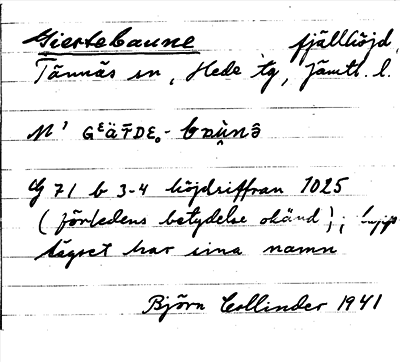 Giertebaune fjällhöjd,
Tännäs sn, Hede tg, Jämtl. l.
M' GᴱäT̄DE.- baùnô
G 71 b 3-4 höjdsiffran 1025
(förledens betydelse okänd);
har sina namn
Björn Collinder 1941